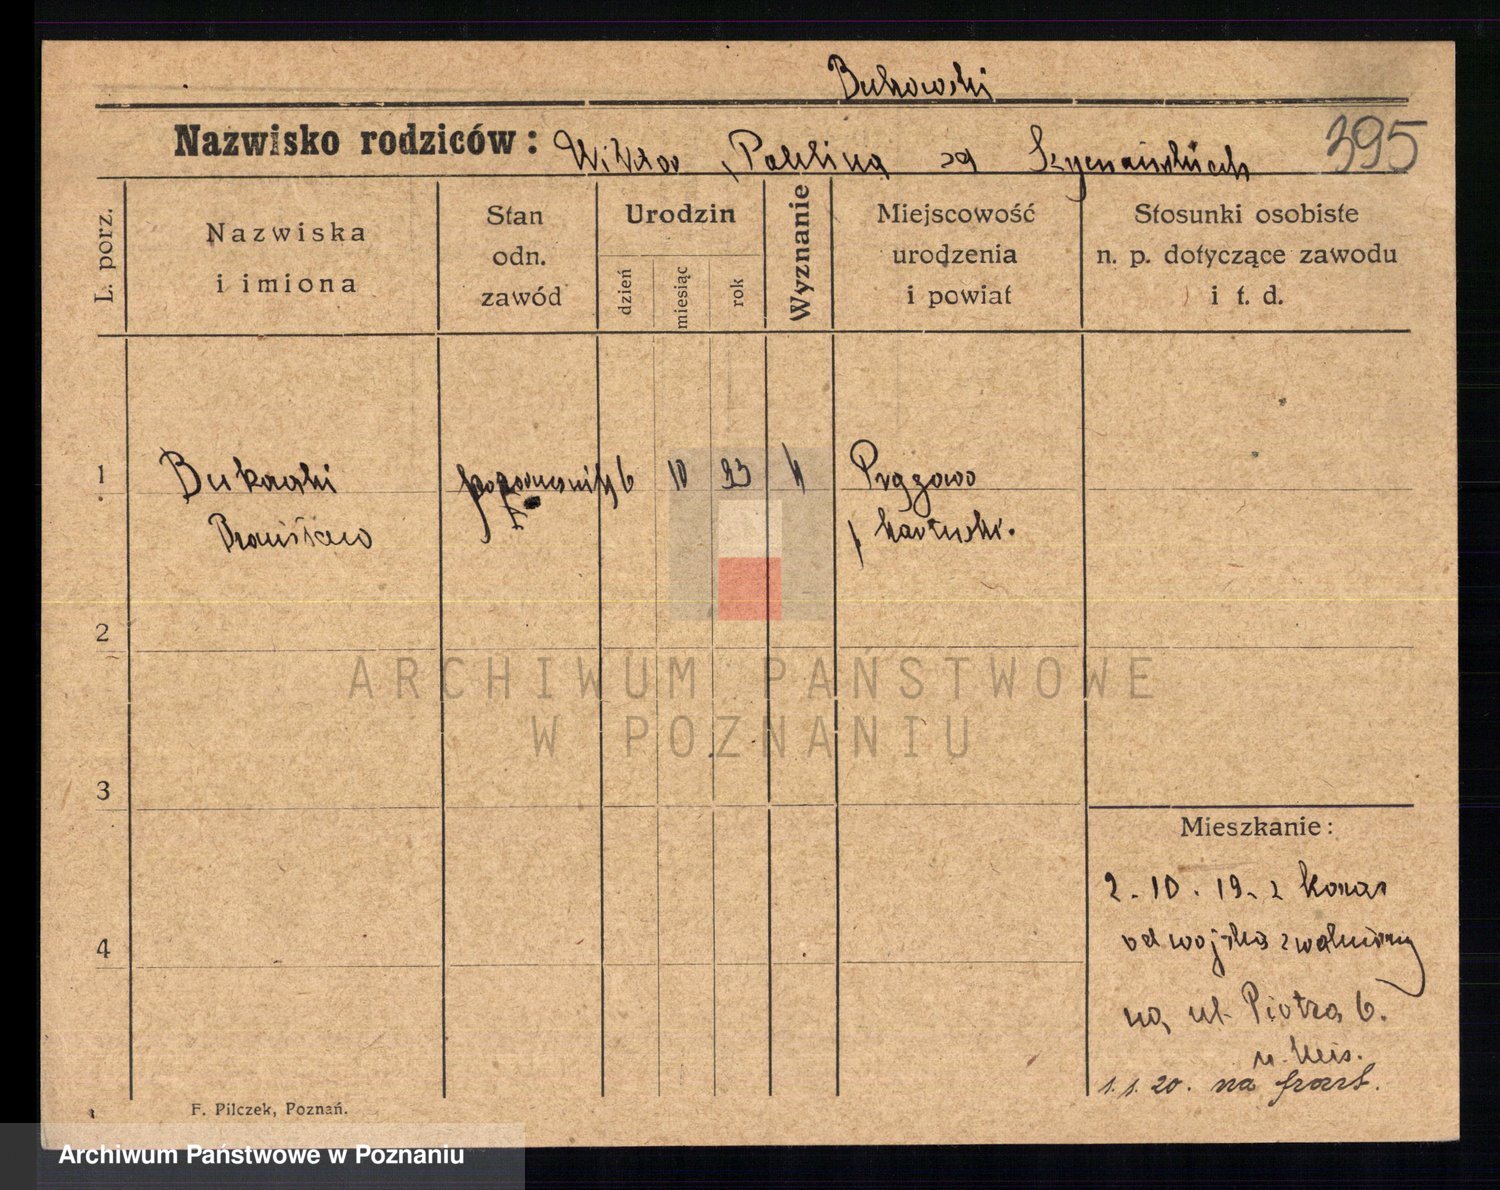 Bukowski
Nazwisko rodziców: Wiktor, Paulina
395
L. porz.
Nazwiska
i imiona
Stan
odn.
zawód
Urodzin
dzień
miesiąc
rok
Wyznanie
Miejscowość
urodzenia
i powiat
Stosunki osobiste
n. p. dotyczące zawodu
i t. d.
1
Bukowski
6 10 93 k
p kartuski.
2
ARCHIWUM PAŃSTWOWE
W POZNANIU
3
Mieszkanie:
4
2. 10. 19. z
od wojska zwolniony
na ul. Piotra 6.
1. 1. 20. na
F. Pilczek, Poznań.
Archiwum Państwowe w Poznaniu